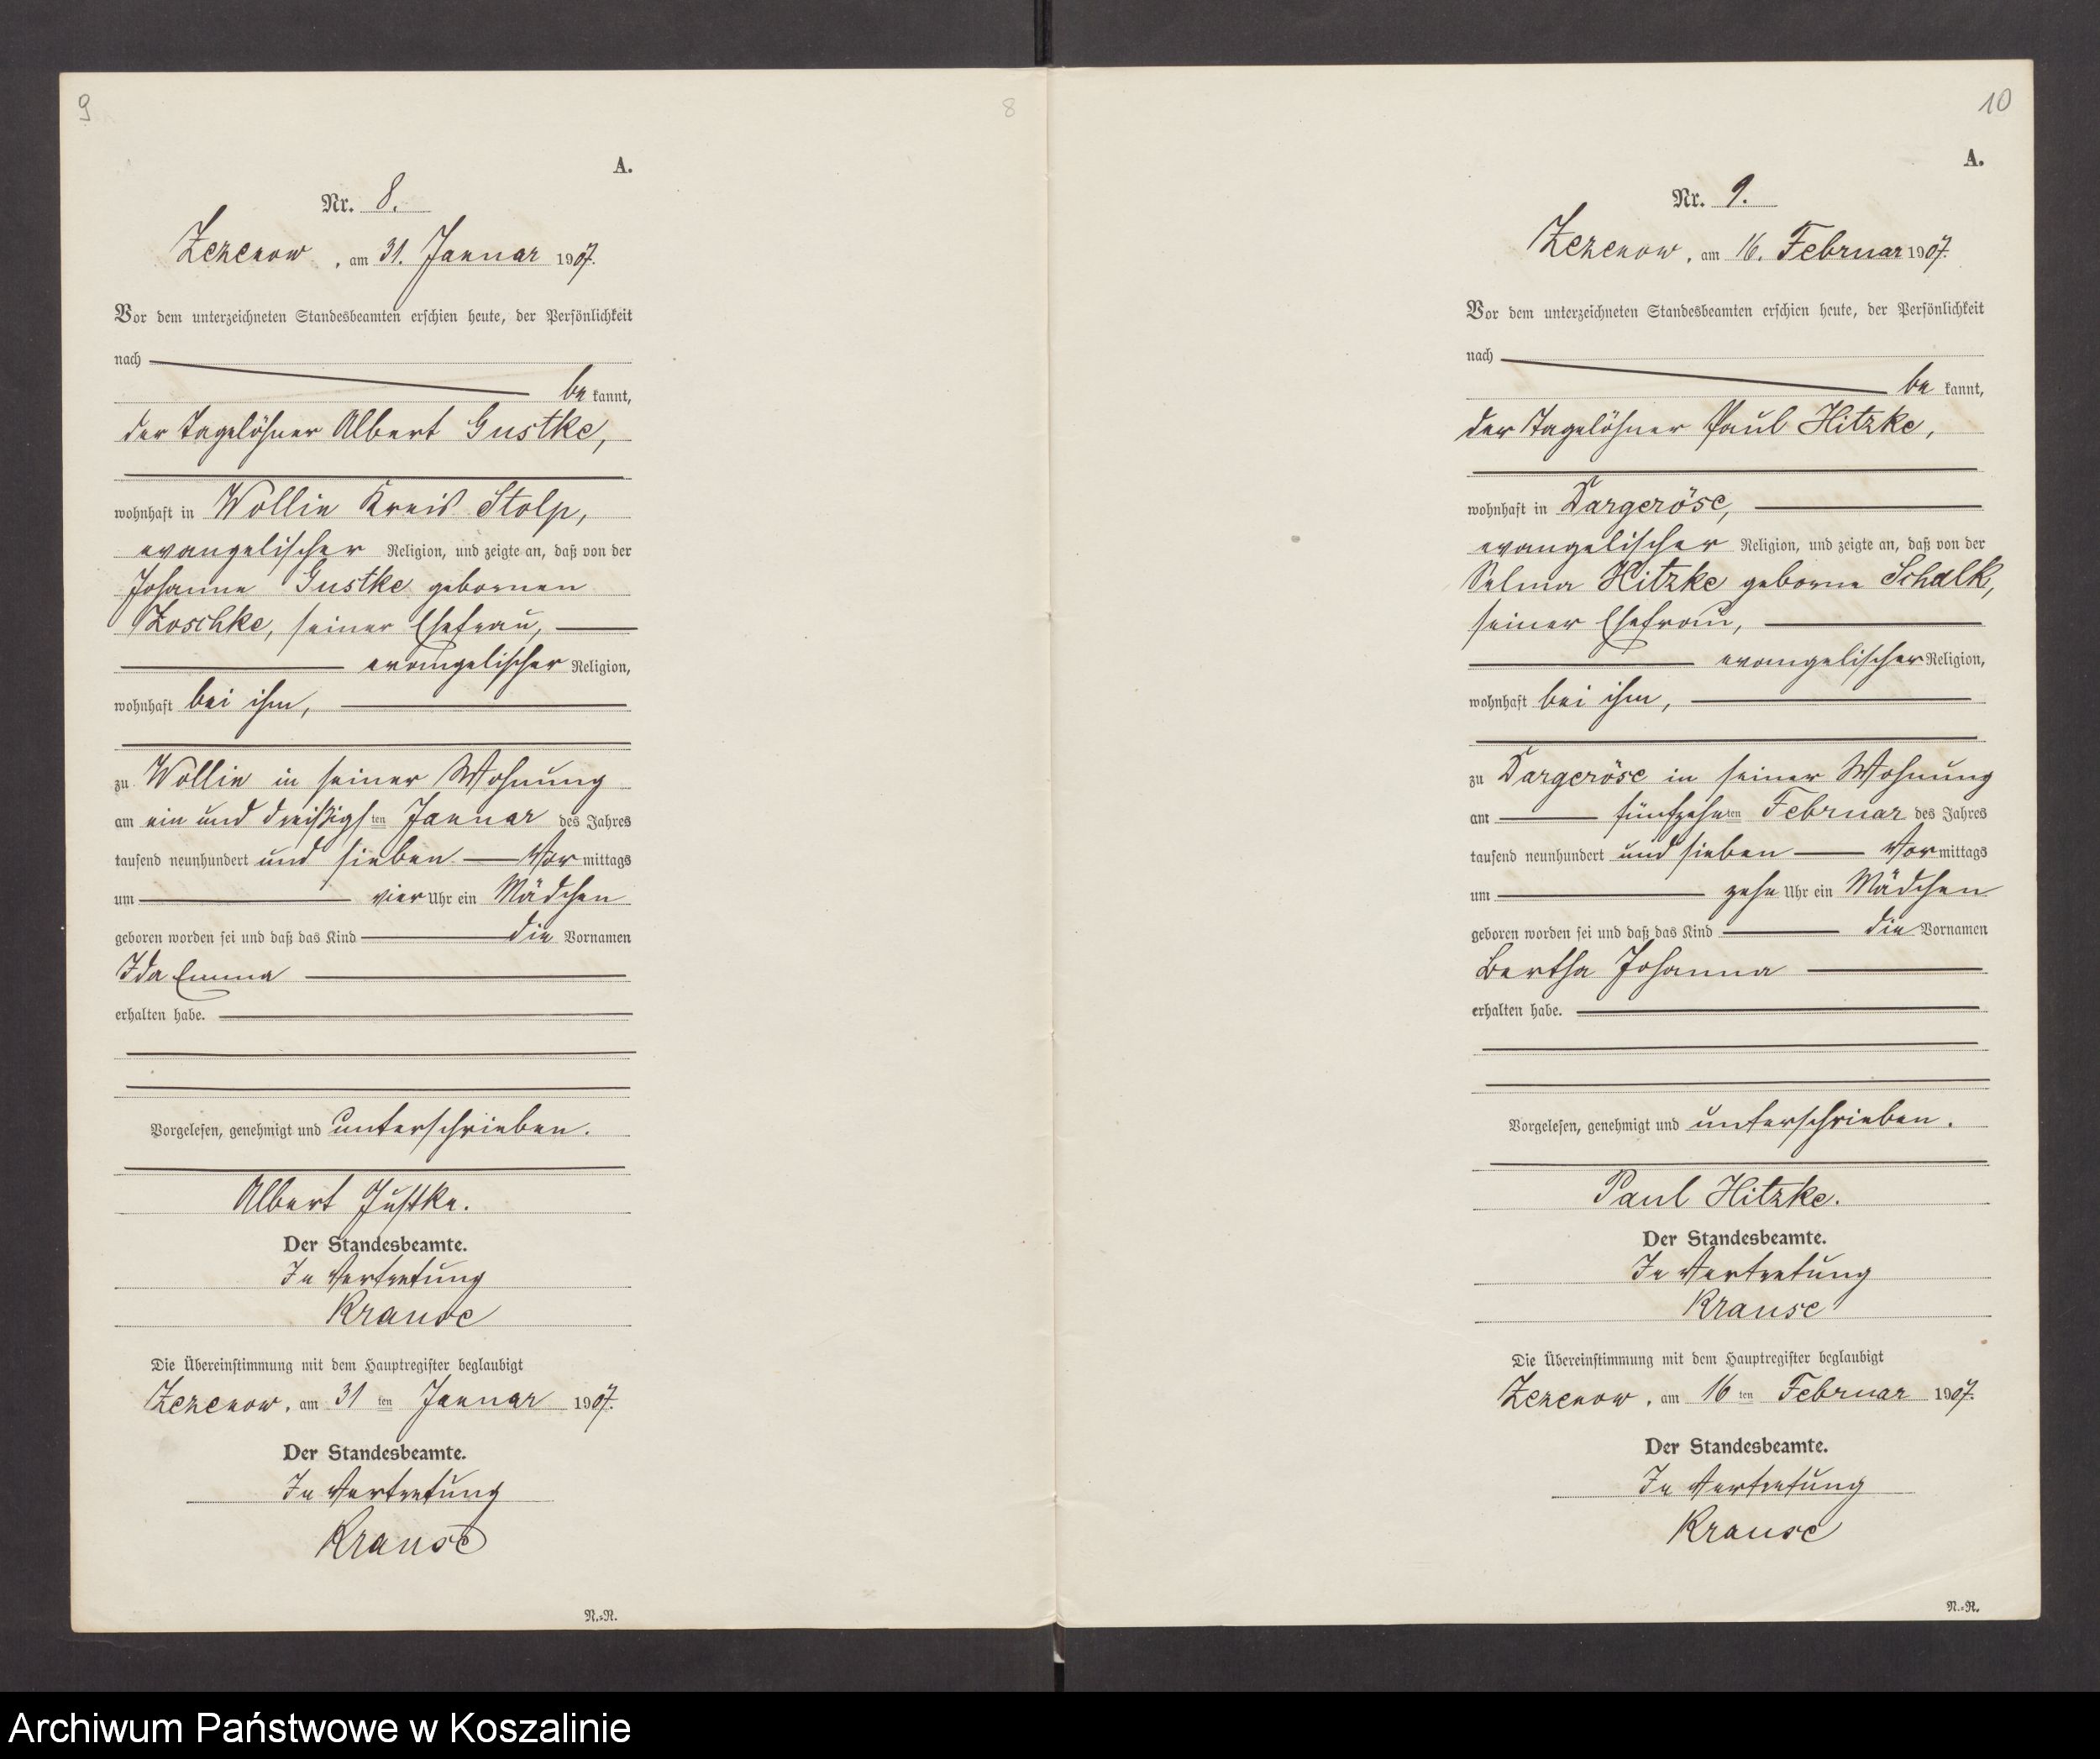 9
8
A.
Nr. 8.
Zezenow, am 31. Januar 1907.
Vor dem unterzeichneten Standesbeamten erschien heute, der Persönlichkeit
nach
be kannt,
der Tagelöhner Albert Gustke,
wohnhaft in Wollin Kreis Stolp,
evangelischer Religion, und zeigte an, daß von der
Johanne Gustke gebornen
Zoschke, seiner Ehefrau,
evangelischer Religion,
wohnhaft bei ihm,
zu Wollin in seiner Wohnung
am ein und dreißigsten Januar des Jahres
tausend neunhundert und sieben Vormittags
um vier Uhr ein Mädchen
geboren worden sei und daß das Kind die Vornamen
Ida Emma
erhalten habe.
Vorgelesen, genehmigt und unterschrieben.
Albert Justke.
Der Standesbeamte.
In Vertretung
Krause
Die Übereinstimmung mit dem Hauptregister beglaubigt
Zezenow, am 31 ten Januar 1907.
Der Standesbeamte.
In Vertretung
Krause
N.=N.
10
A.
Nr. 9.
Zezenow, am 16. Februar 1907.
Vor dem unterzeichneten Standesbeamten erschien heute, der Persönlichkeit
nach
be kannt,
der Tagelöhner Paul Hitzke,
wohnhaft in Dargeröse,
evangelischer Religion, und zeigte an, daß von der
Selma Hitzke geborne Schalk,
seiner Ehefrau,
evangelischer Religion,
wohnhaft bei ihm,
zu Dargeröse in seiner Wohnung
am fünfzehnten Februar des Jahres
tausend neunhundert und sieben Vormittags
um zehn Uhr ein Mädchen
geboren worden sei und daß das Kind die Vornamen
Bertha Johanna
erhalten habe.
Vorgelesen, genehmigt und unterschrieben.
Paul Hitzke.
Der Standesbeamte.
In Vertretung
Krause
Die Übereinstimmung mit dem Hauptregister beglaubigt
Zezenow, am 16 ten Februar 1907.
Der Standesbeamte.
In Vertretung
Krause
N.=N.
Archiwum Państwowe w Koszalinie